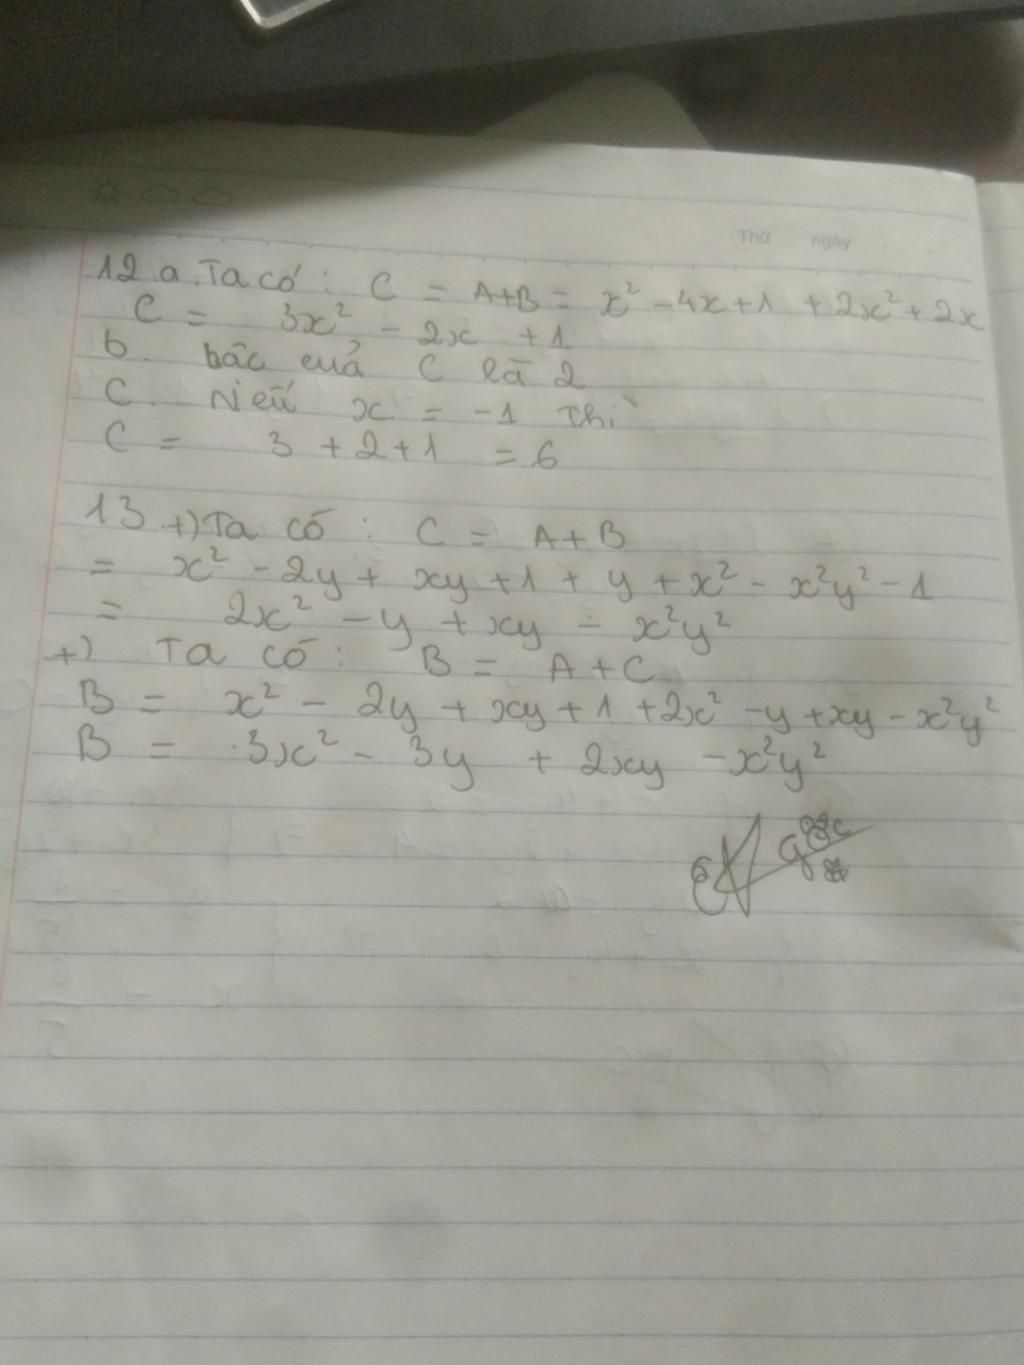 Thứ ngày
12.a.Ta có: C = A+B = x² - 4x+1 + 2x² + 2x
C = 3x² - 2x + 1
b. bậc củả C là 2
C. Nếu x = -1 thì
C = 3 + 2+1 = 6
13 +) Ta có: C = A+B
= x² - 2y + xy + 1 + y + x² - x²y² - 1
= 2x² - y + xy - x²y²
+) Ta có: B = A + C
B = x² - 2y + xy + 1 + 2x² - y + xy - x²y²
B = 3x² - 3y + 2xy - x²y²